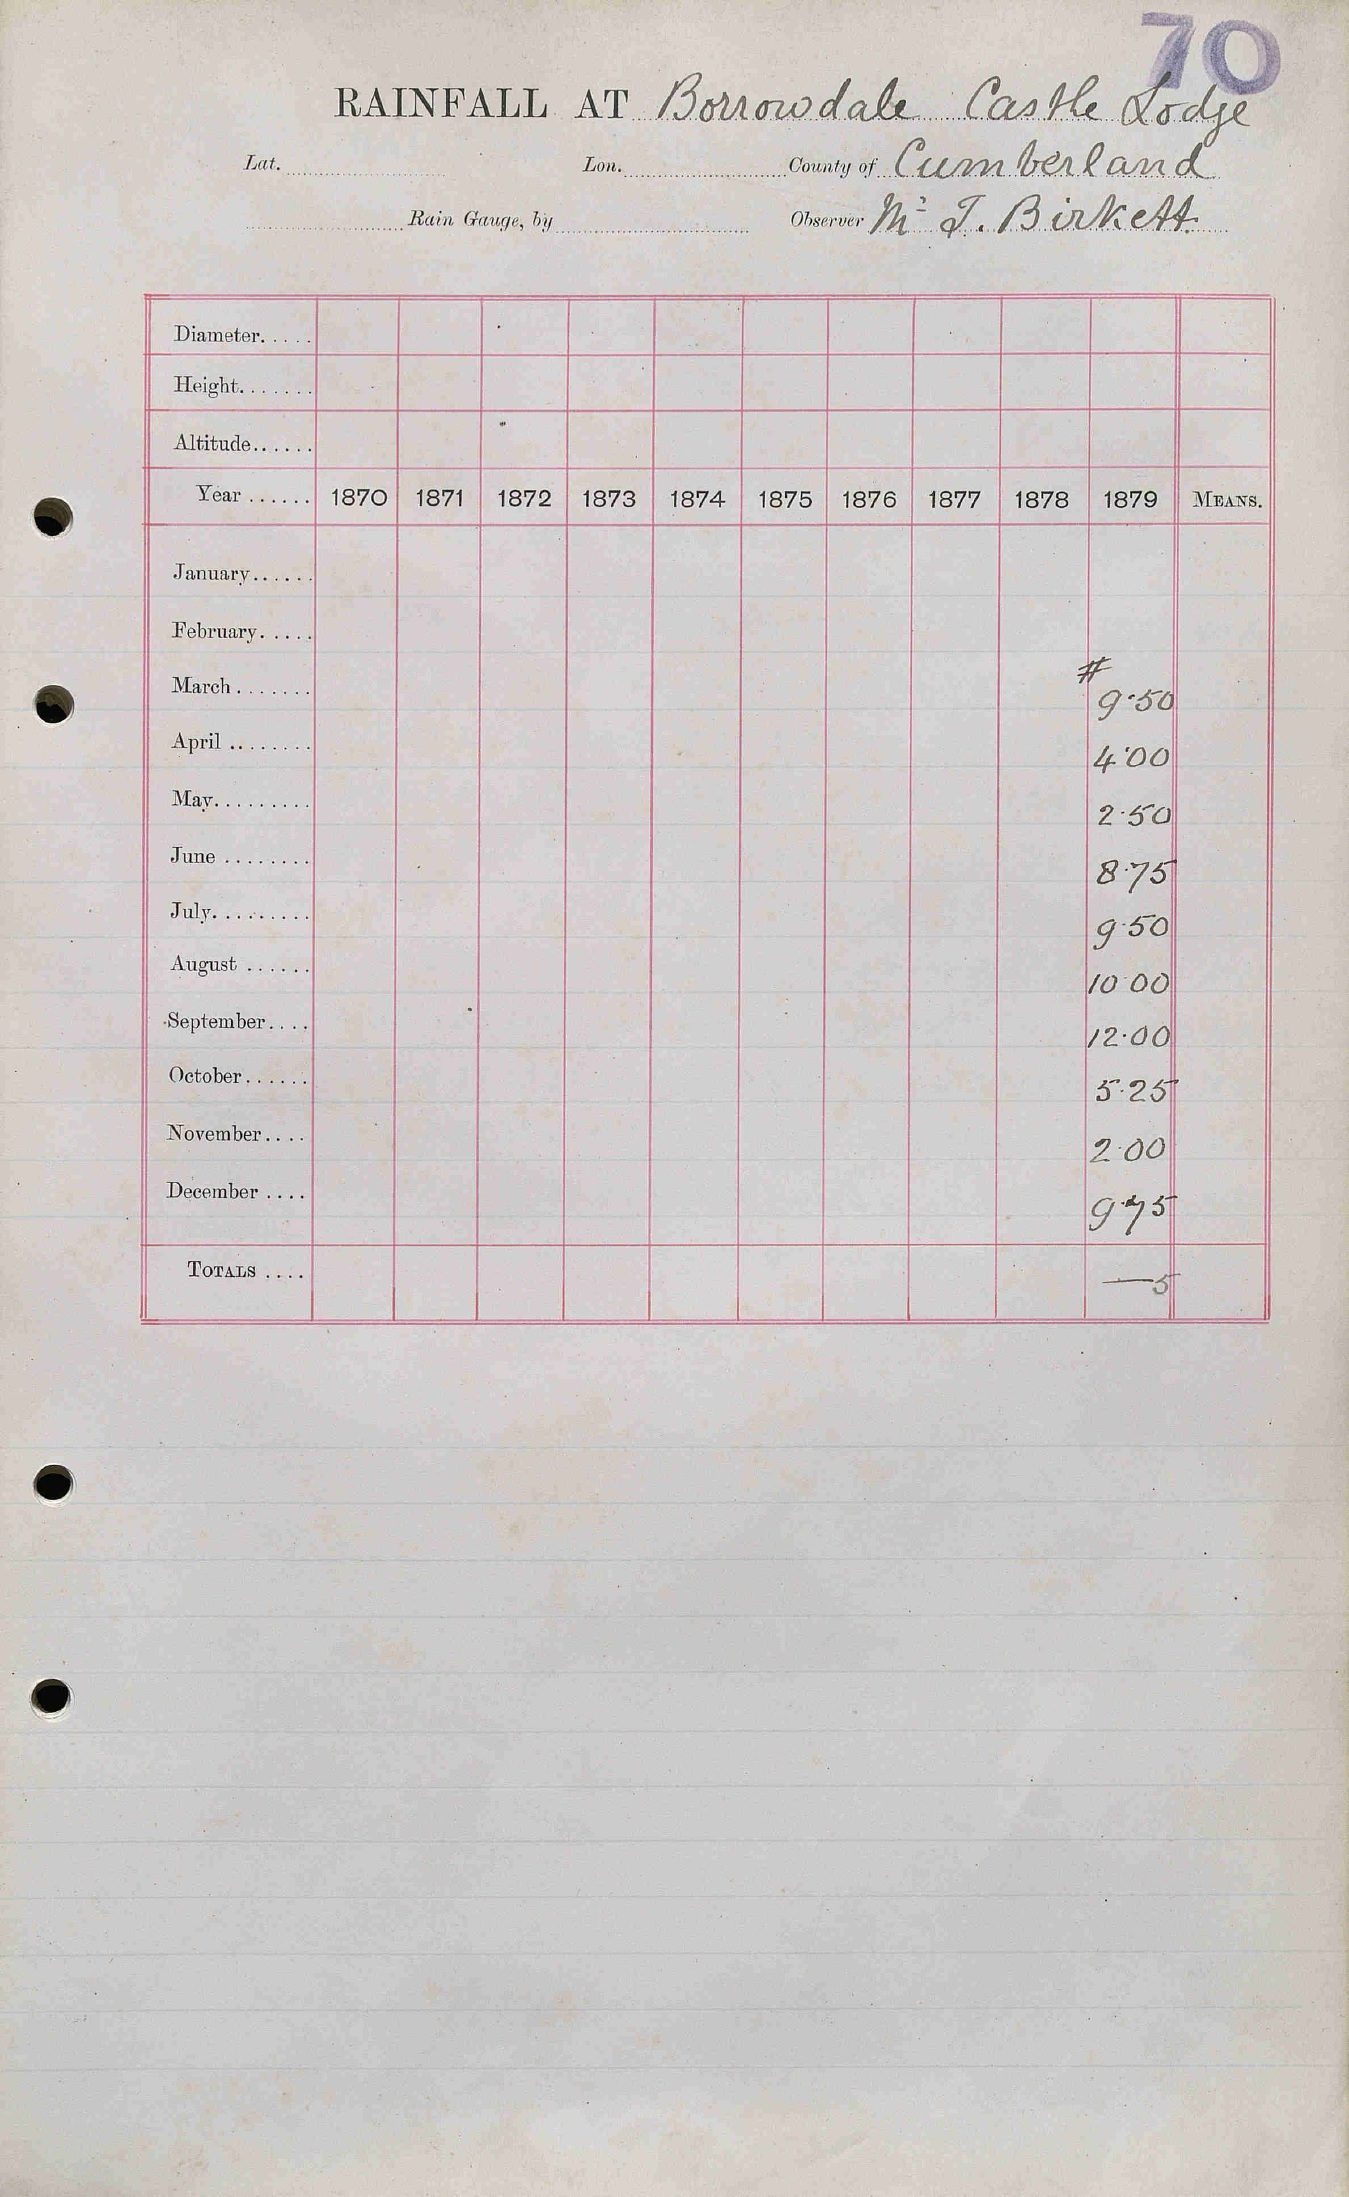 70
RAINFALL AT Borrowdale Castle Lodge
Lat. Lon. County of Cumberland
Rain Gauge, by Observer Mr T. Birkett
Diameter.....
Height.......
Altitude......
Year ...... 1870 1871 1872 1873 1874 1875 1876 1877 1878 1879 MEANS.
January......
February.....
#
March ....... 9.50
April ........ 4.00
May......... 2.50
June ........ 8.75
July......... 9.50
August ...... 10.00
September.... 12.00
October...... 5.25
November.... 2.00
December .... 9.75
TOTALS .... —5